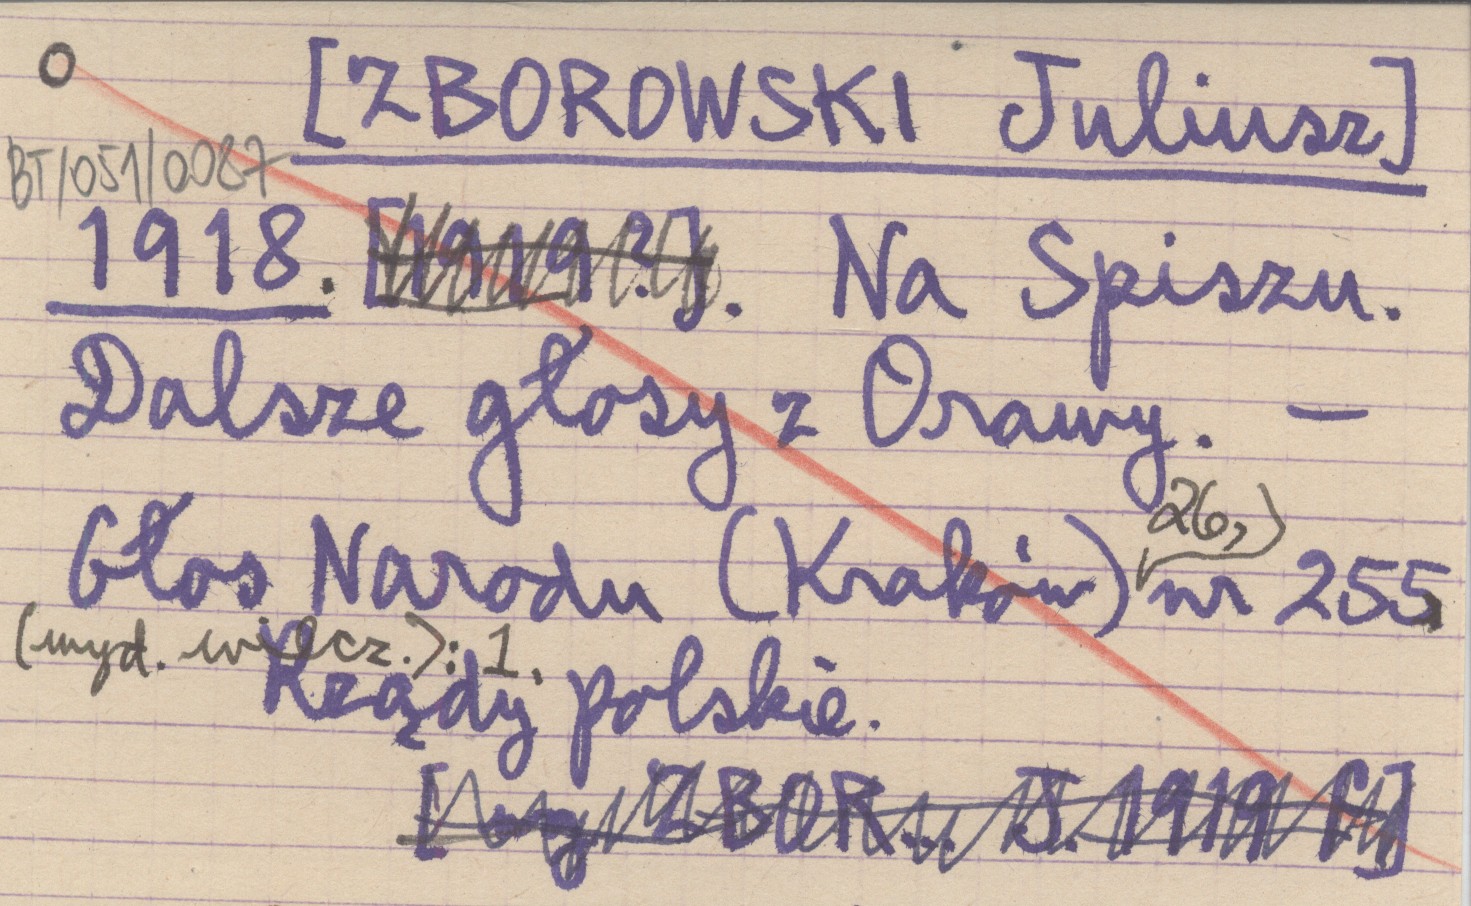 [ZBOROWSKI Juliusz]
BT/051/0087
1918. [1919?]. Na Spiszu.
Dalsze głosy z Orawy. —
Głos Narodu (Kraków) 26, nr 255
(wyd. wiecz.): 1.
Rządy polskie.
[ ZBOR. J. 1919 ]